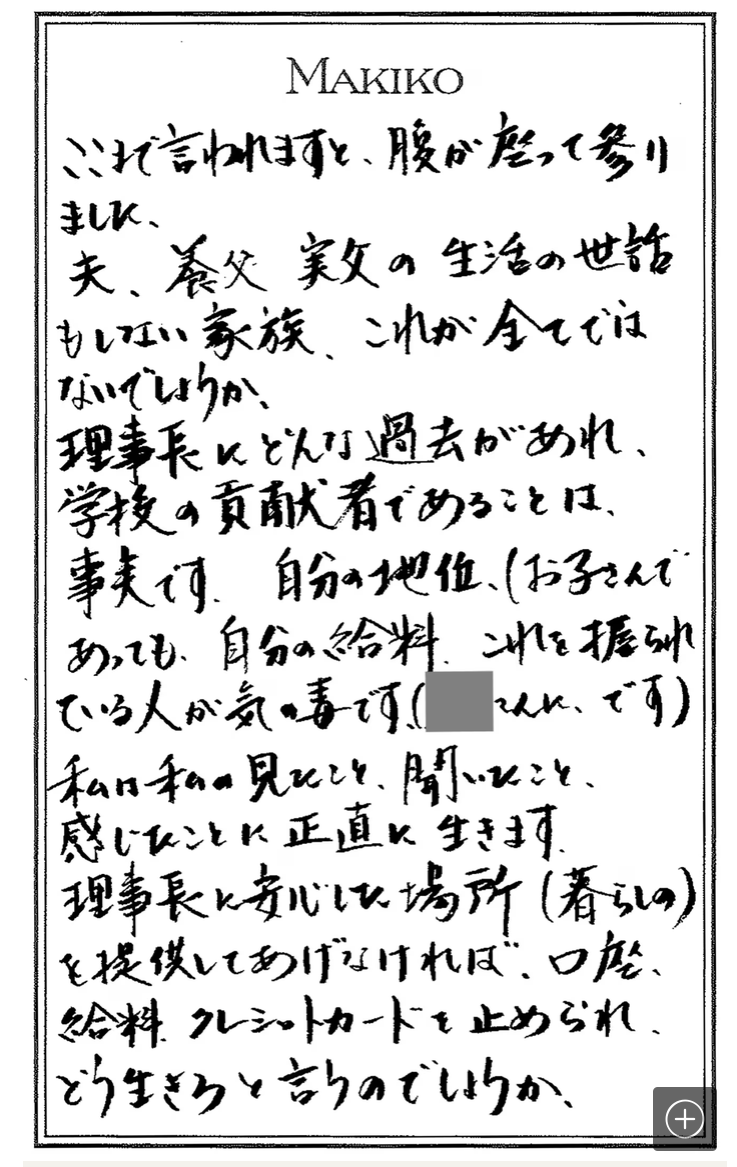 MAKIKO
ここまで言われますと、腹が座って参り
ました、
夫、養父 実父の生活の世話
もしない家族、これが全てでは
ないでしょうか、
理事長にどんな過去があれ、
学校の貢献者であることは、
事実です. 自分の地位、(お子さんで
あっても、自分の給料、これを握られ
ている人が気の毒です.( さんに、です)
私は私の見たこと、聞いたこと、
感じたことに正直に生きます.
理事長に安心した場所(暮らしの)
を提供してあげなければ、口座、
給料、クレジットカードを止められ、
どう生きろと言うのでしょうか、